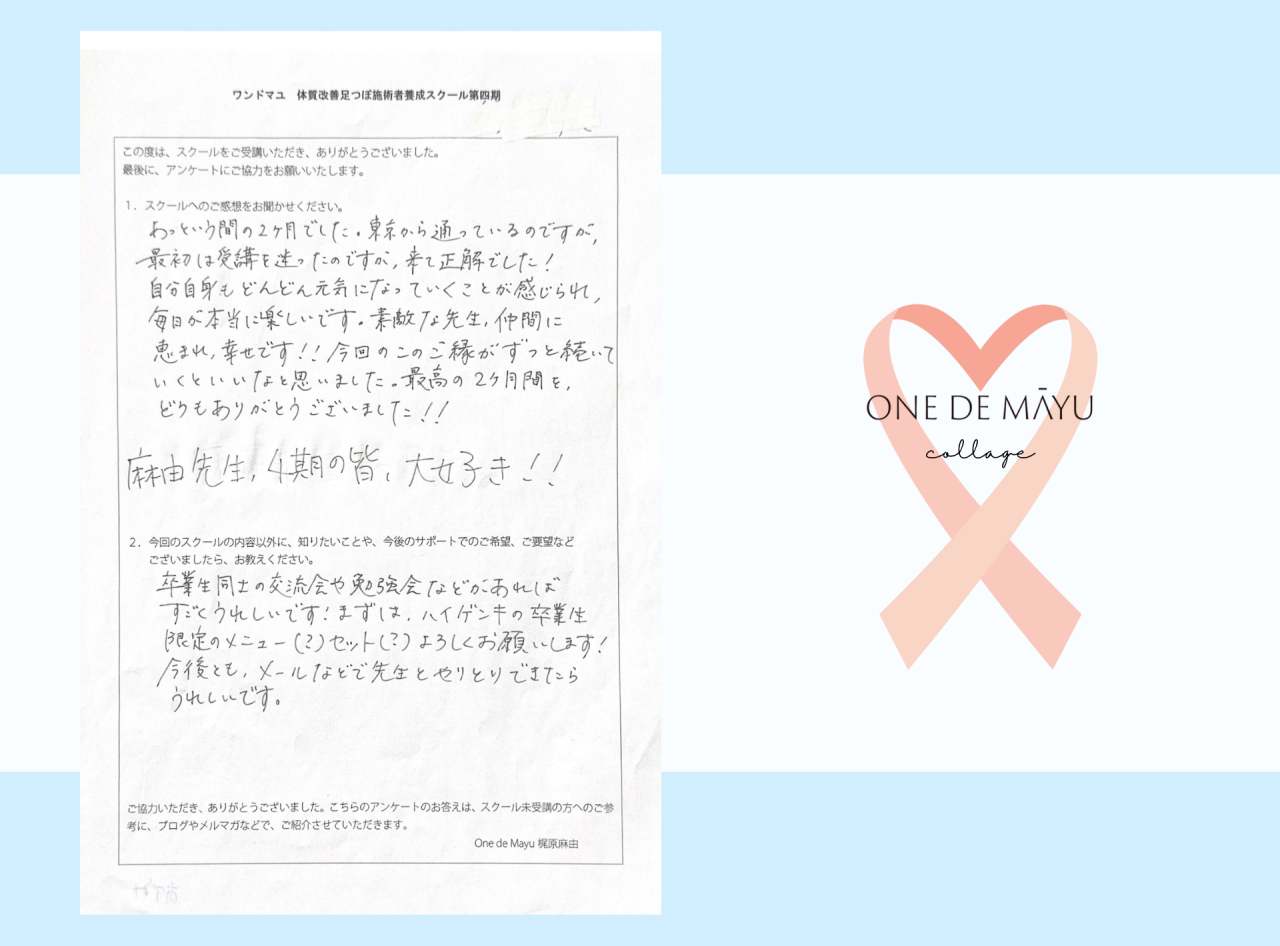 ワンドマユ　体質改善足つぼ施術者養成スクール第四期
この度は、スクールをご受講いただき、ありがとうございました。
最後に、アンケートにご協力をお願いいたします。
1．スクールへのご感想をお聞かせください。
あっという間の2ヶ月でした。東京から通っているのですが、
最初は受講を迷ったのですが、来て正解でした！
自分自身もどんどん元気になっていくことが感じられ、
毎日が本当に楽しいです。素敵な先生、仲間に
恵まれ、幸せです！！今回のこのご縁がずっと続いて
いくといいなと思いました。最高の2ヶ月間を、
どうもありがとうございました！！
麻由先生、4期の皆、大好き！！
2．今回のスクールの内容以外に、知りたいことや、今後のサポートでのご希望、ご要望など
ございましたら、お教えください。
卒業生同士の交流会や勉強会などがあれば
すごくうれしいです！まずは、ハイゲンキの卒業生
限定のメニュー(?)セット(?)よろしくお願いします！
今後とも、メールなどで先生とやりとりできたら
うれしいです。
ご協力いただき、ありがとうございました。こちらのアンケートのお答えは、スクール未受講の方へのご参
考に、ブログやメルマガなどで、ご紹介させていただきます。
One de Mayu 梶原麻由
ONE DE MĀYU
collage